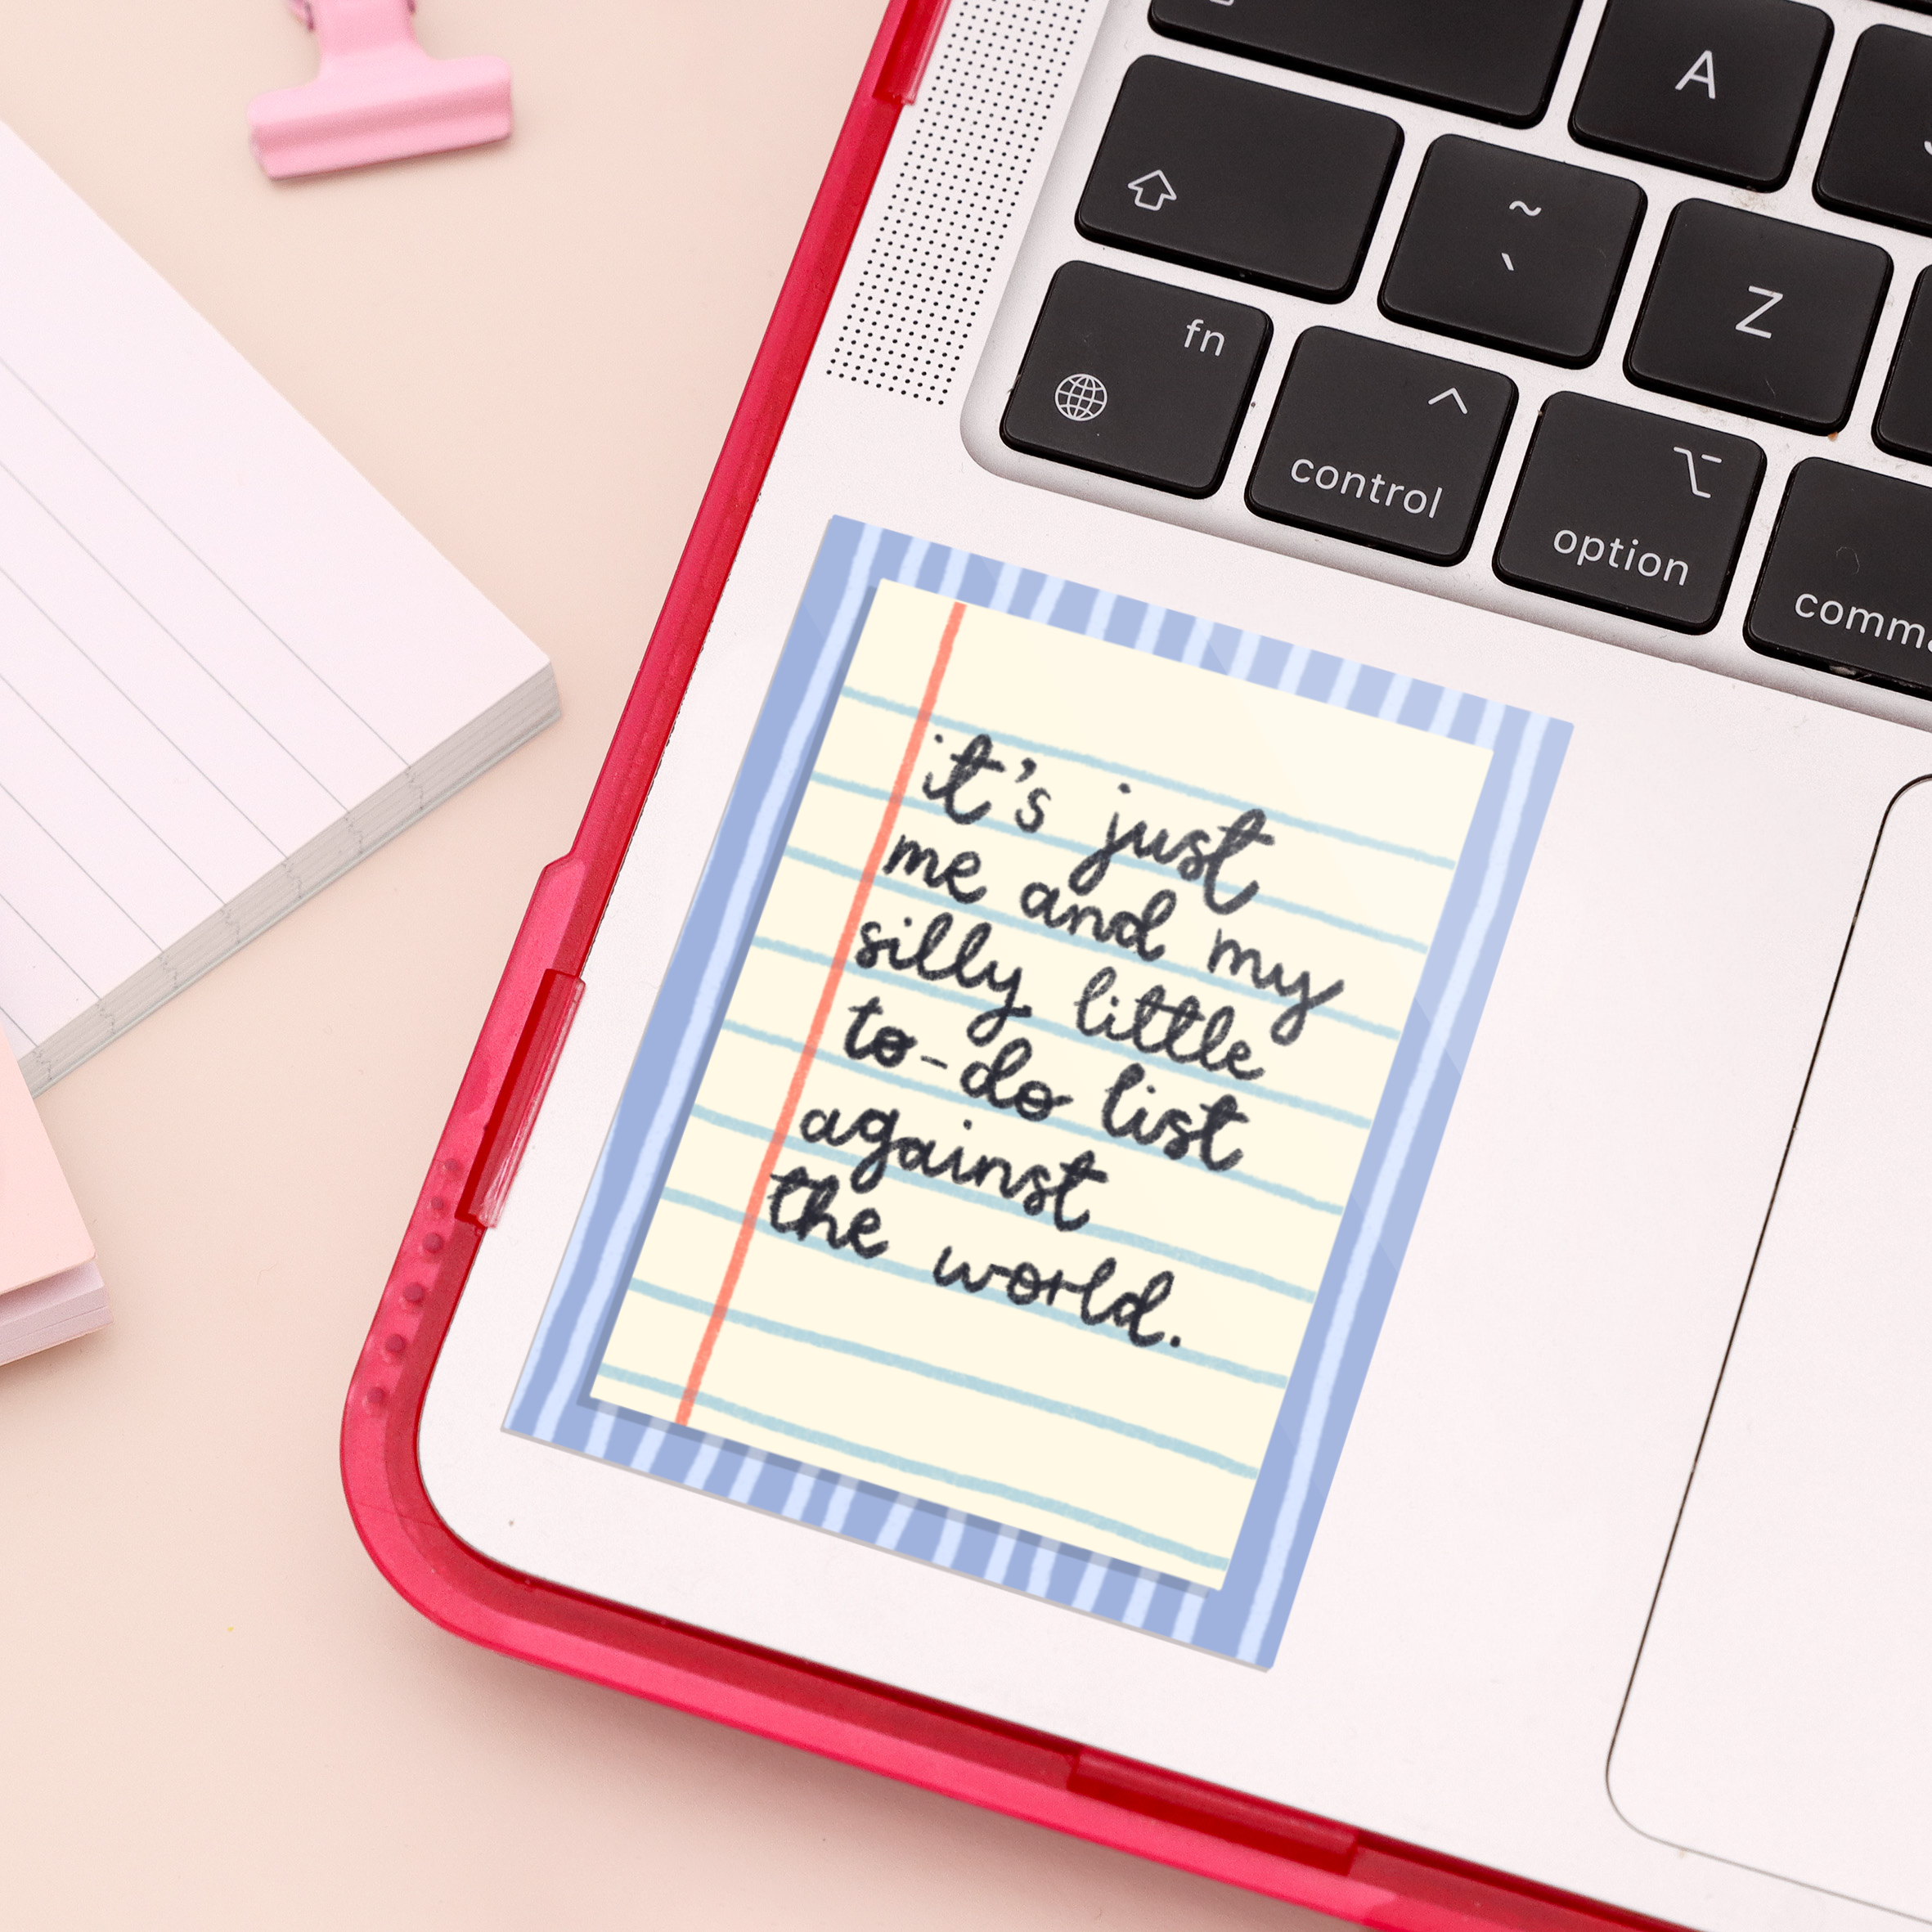 A
~
`
Z
fn
control
option
it's just
me and my
silly little
to-do list
against
the world.